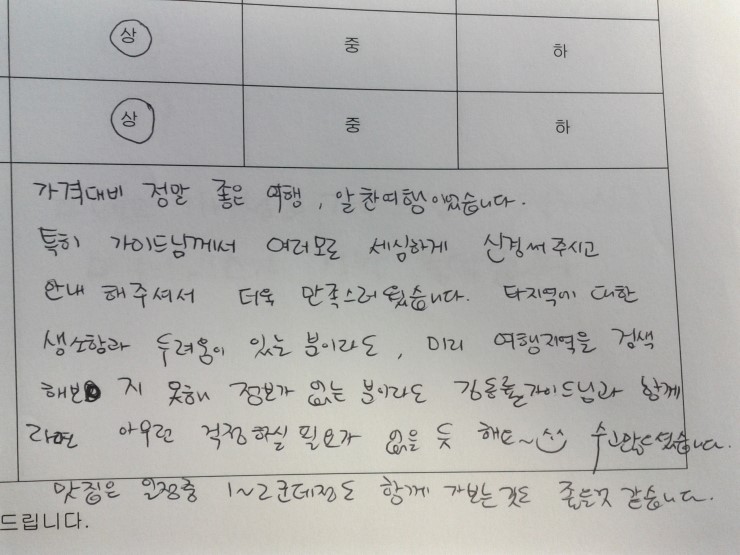 상 중 하
상 중 하
가격대비 정말 좋은 여행, 알찬여행이었습니다.
특히 가이드님께서 여러모로 세심하게 신경써주시고
안내 해주셔서 더욱 만족스러웠습니다. 타지역에 대한
생소함과 두려움이 있는 분이라도, 미리 여행지역을 검색
해보지 못해 정보가 없는 분이라도 가이드님과 함께
라면 아무런 걱정하실 필요가 없을 듯 해요~^^ 수고많으셨습니다.
맛집은 일정중 1~2군데정도 함께 가보는것도 좋을것 같습니다.
드립니다.